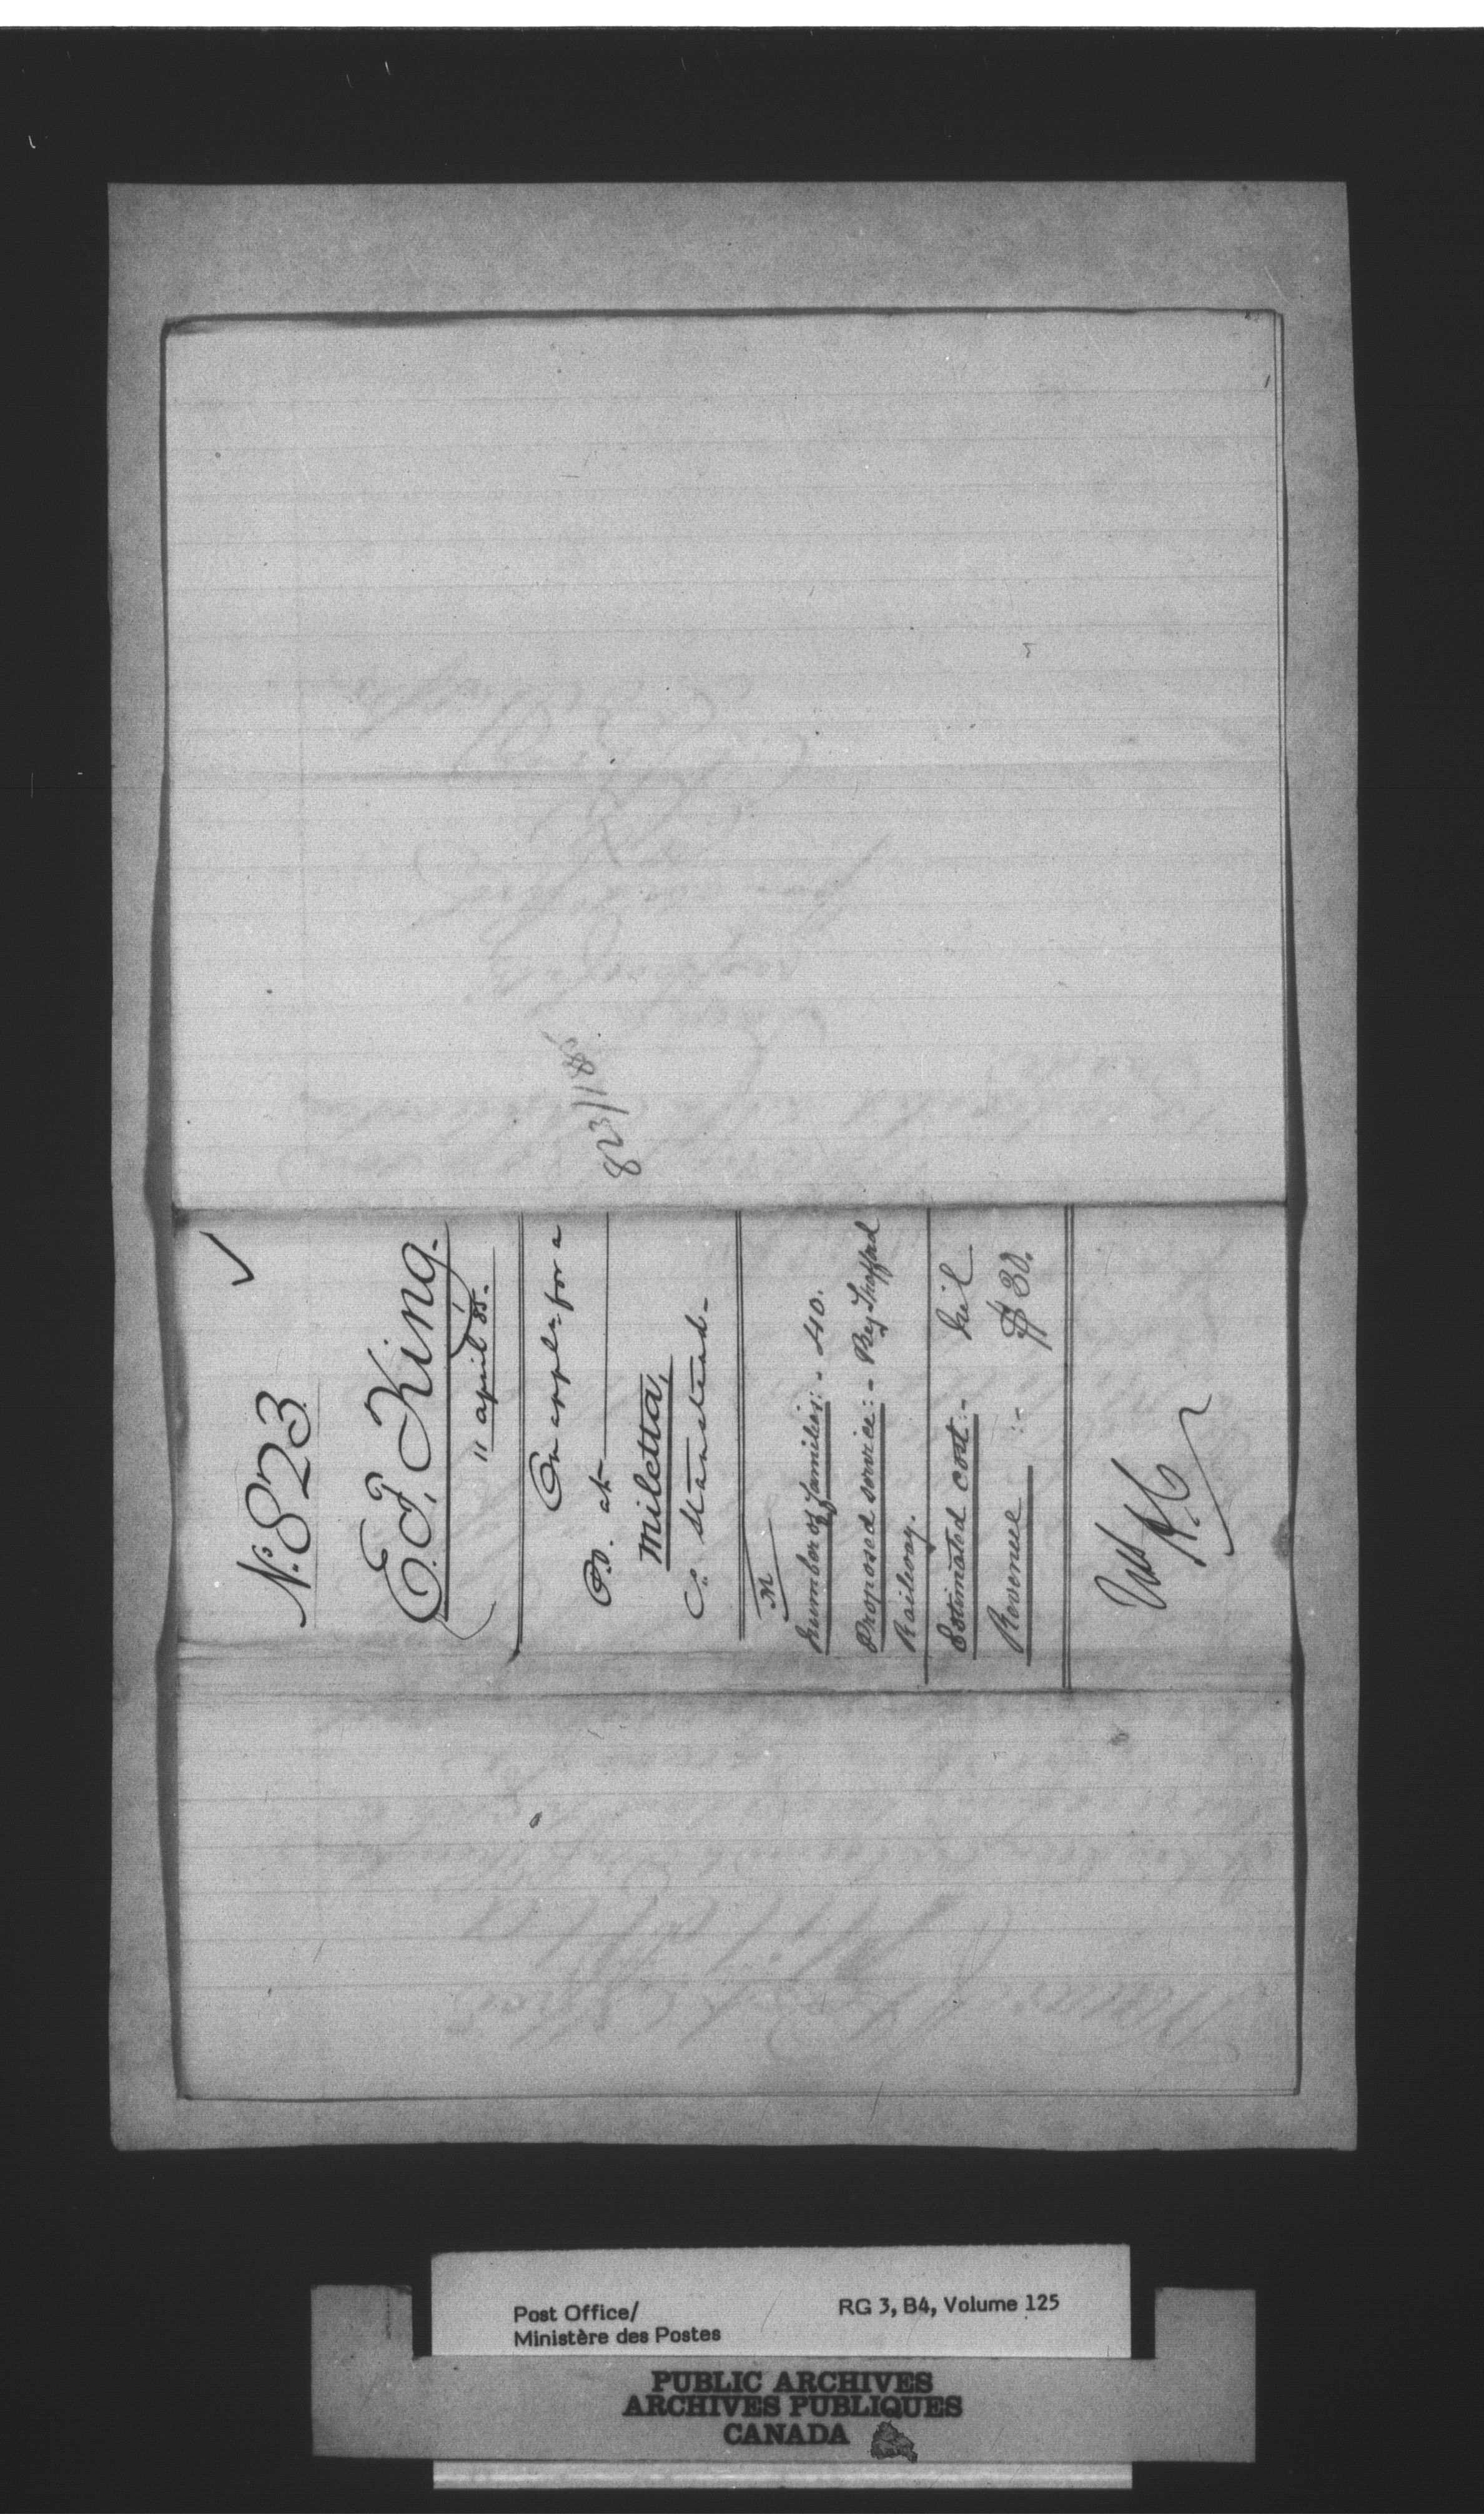 ✓
No. 823
E.F. King.
11 april 85.
On appln for a
P.O. at
Miletta,
Co. Stanstead-
M
Number of Families:- 40.
Proposed service:- By Shefford
Railway.
Estimated cost:- Nil
Revenue :- $30.
823/1185
Post Office/
Ministère des Postes
RG 3, B4, Volume 125
PUBLIC ARCHIVES
ARCHIVES PUBLIQUES
CANADA